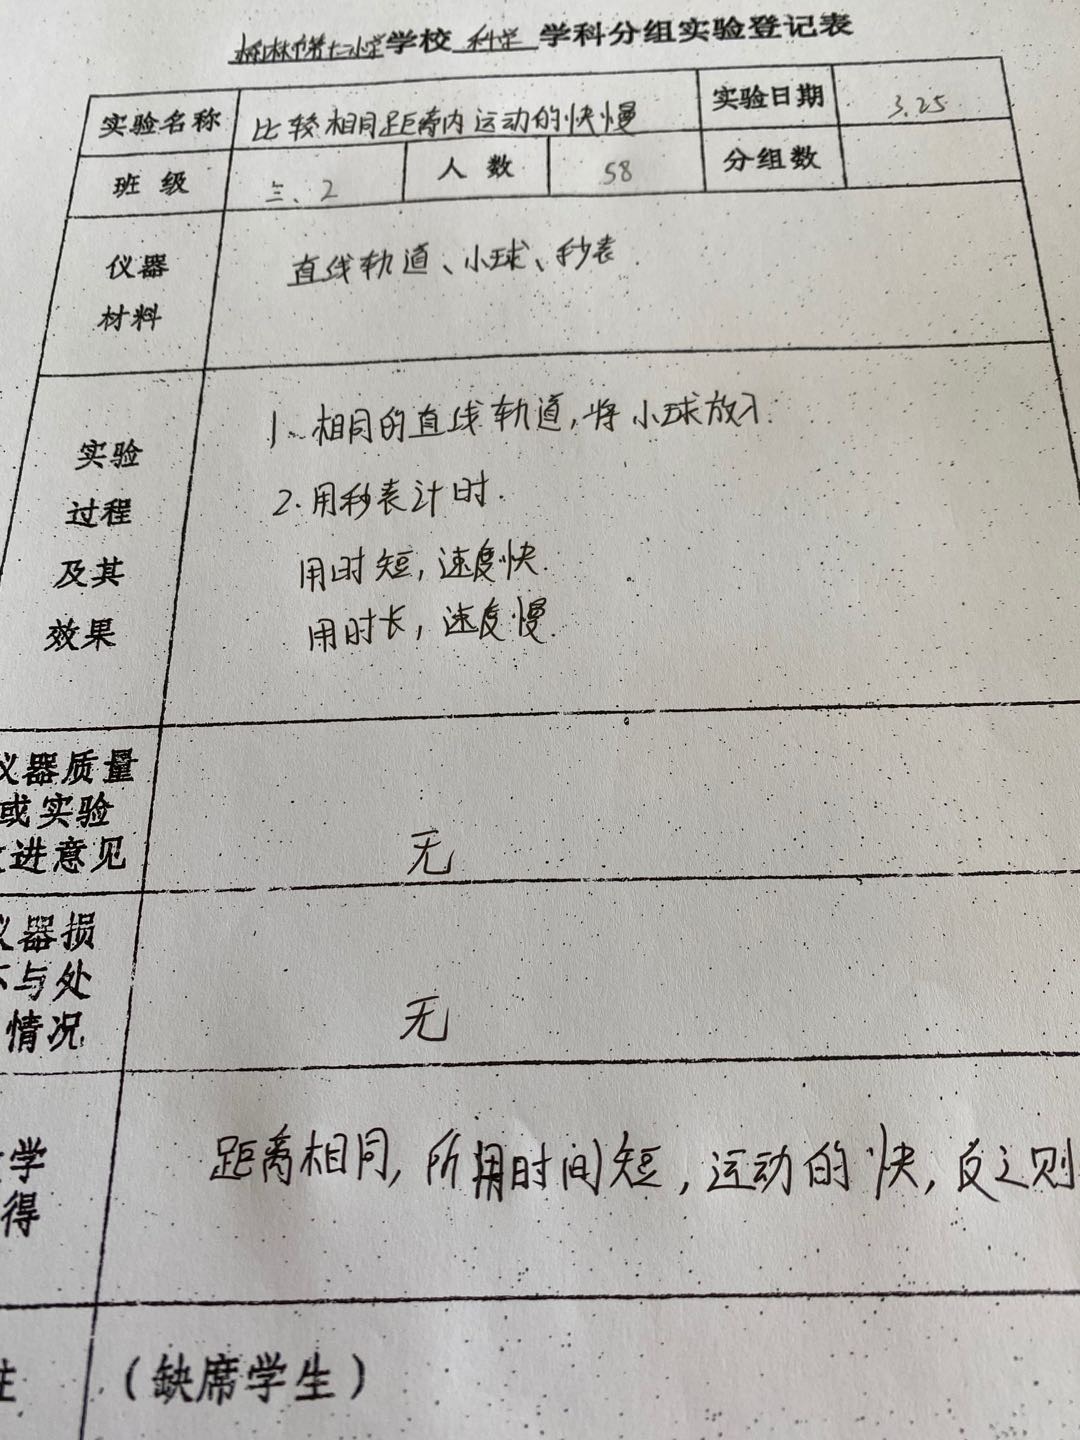 榆林市第十二小学学校 科学 学科分组实验登记表
实验名称 比较相同距离内运动的快慢 实验日期 3.25
班 级 三、2 人 数 58 分组数
仪器
材料
直线轨道、小球、秒表
实验
过程
及其
效果
1、相同的直线轨道,将小球放入.
2.用秒表计时.
用时短,速度快.
用时长,速度慢.
仪器质量
或实验
改进意见
无
仪器损
坏与处
情况
无
学
得
距离相同,所用时间短,运动的快,反之则
注
(缺席学生)